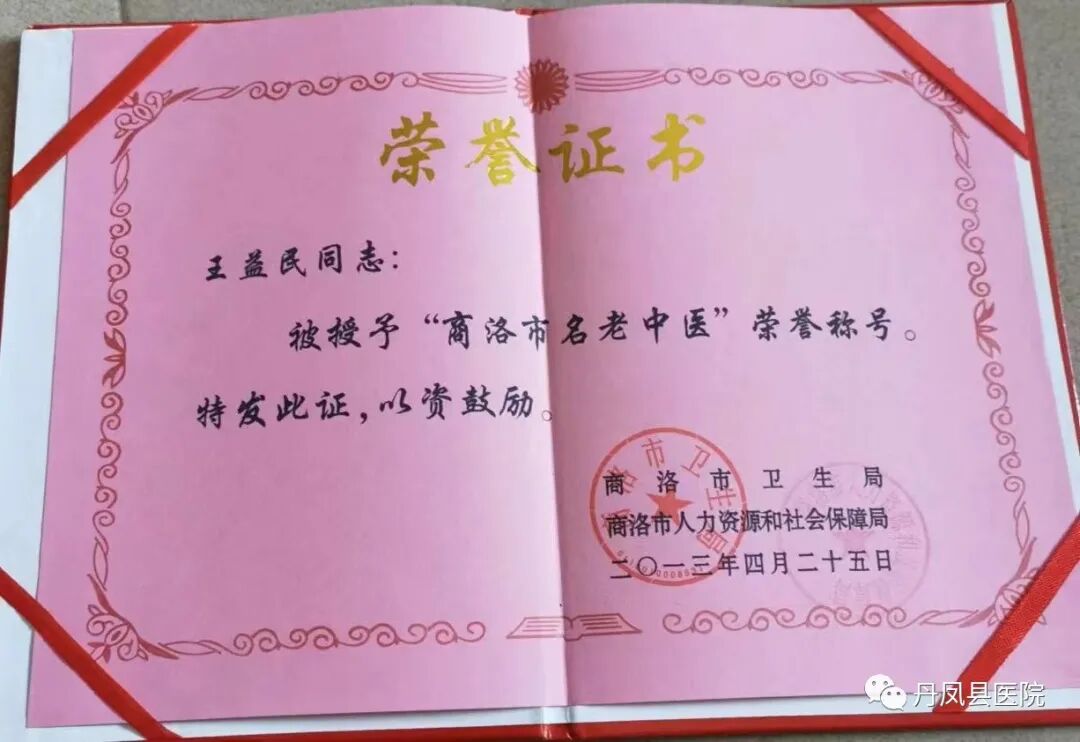 荣誉证书
王益民同志：
被授予“商洛市名老中医”荣誉称号。
特发此证，以资鼓励。
商洛市卫生局
商洛市人力资源和社会保障局
二〇一三年四月二十五日
洛市卫生局
丹凤县医院